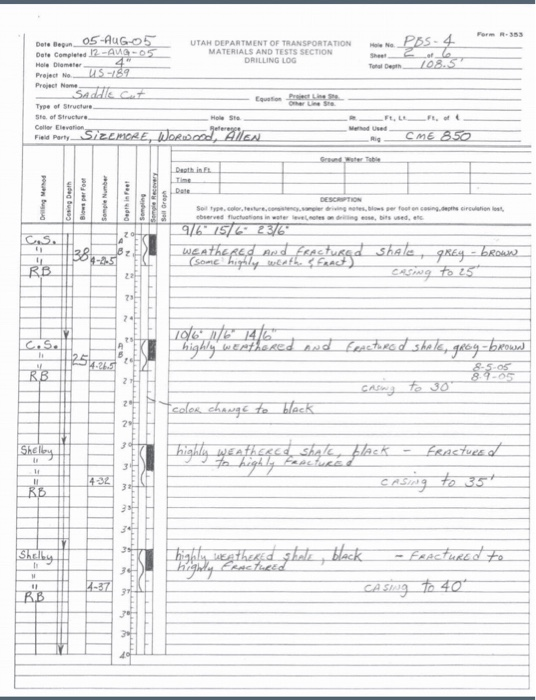 Form R-353
Date Begun 05-AUG-05
UTAH DEPARTMENT OF TRANSPORTATION
Hole No. PBS-4
Date Completed 12-AUG-05
MATERIALS AND TESTS SECTION
Sheet 2 of 6
Hole Diameter 4"
DRILLING LOG
Total Depth 108.5'
Project No. US-189
Project Name SADDLE CUT
Equation Project Line Sta.
Other Line Sta.
Type of Structure
Sta. of Structure Hole Sta. Rt. Ft., Lt. Ft., of ℄
Collar Elevation Reference Method Used
Field Party SIZEMORE, WORWOOD, ALLEN Rig CME 850
Drilling Method
Casing Depth
Blows per Foot
Sample Number
Depth in Feet
Sampling
Sample Recovery
Soil Graph
Ground Water Table
Depth in Ft.
Time
Date
DESCRIPTION
Soil type, color, texture, consistency, sampler driving notes, blows per foot on casing, depths circulation lost,
observed fluctuations in water level, notes on drilling ease, bits used, etc.
20 9/6" 15/6" 23/6"
C.S. A
" 38 B 21 WEATHERED AND FRACTURED shale, GREY - BROWN
" 4-21.5 (some highly weath. & fract)
RB 22 CASING to 25'
23
24
25 10/6" 11/6" 14/6"
C.S. A highly WEATHERED and FRACTURED shale, gray-brown
" 25 B 26 8-5-05
" 4-26.5 8-9-05
RB 27 CASING to 30'
28 color change to black
29
Shelby 30 highly WEATHERED shale, black - FRACTURED
" 31 to highly FRACTURED
"
" 4-32 32 CASING to 35'
RB
33
34
Shelby 35 highly WEATHERED shale, black - FRACTURED to
" 36 highly FRACTURED
"
" 4-37 37 CASING to 40'
RB
38
39
40